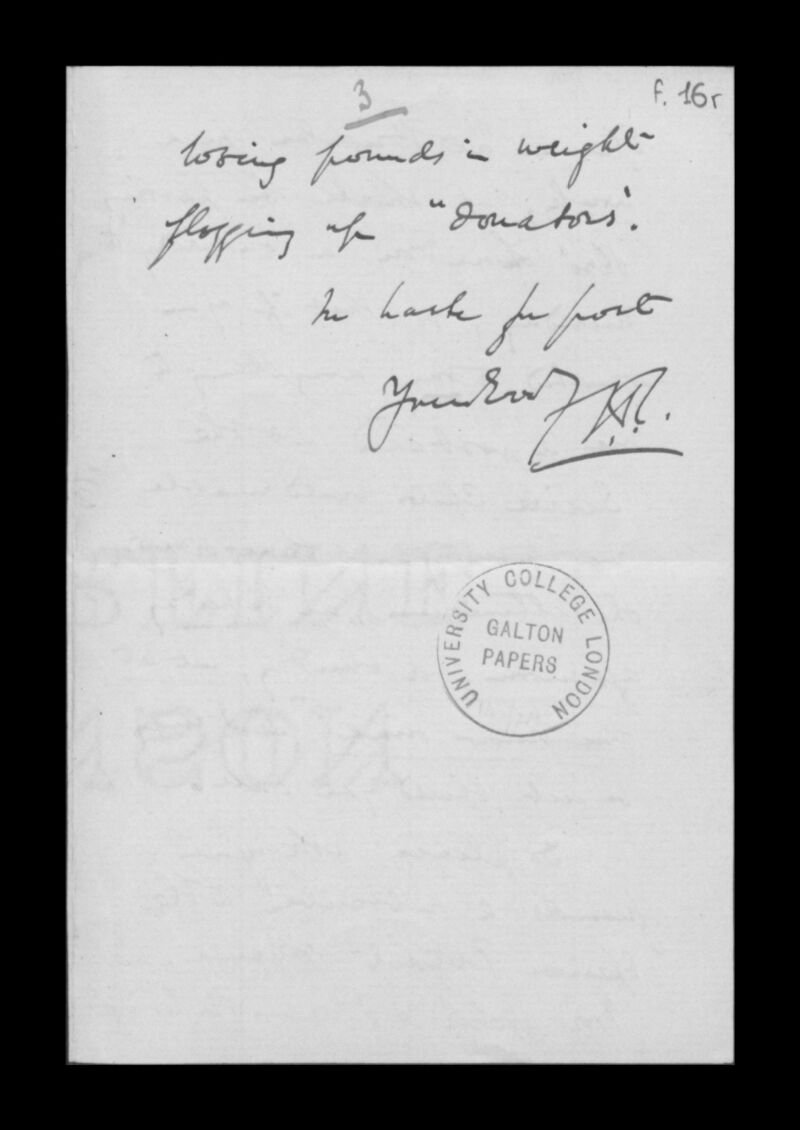 3
f. 16r
losing pounds in weight
flogging up "donators".
In haste for post
Yours ever
UNIVERSITY COLLEGE LONDON
GALTON
PAPERS